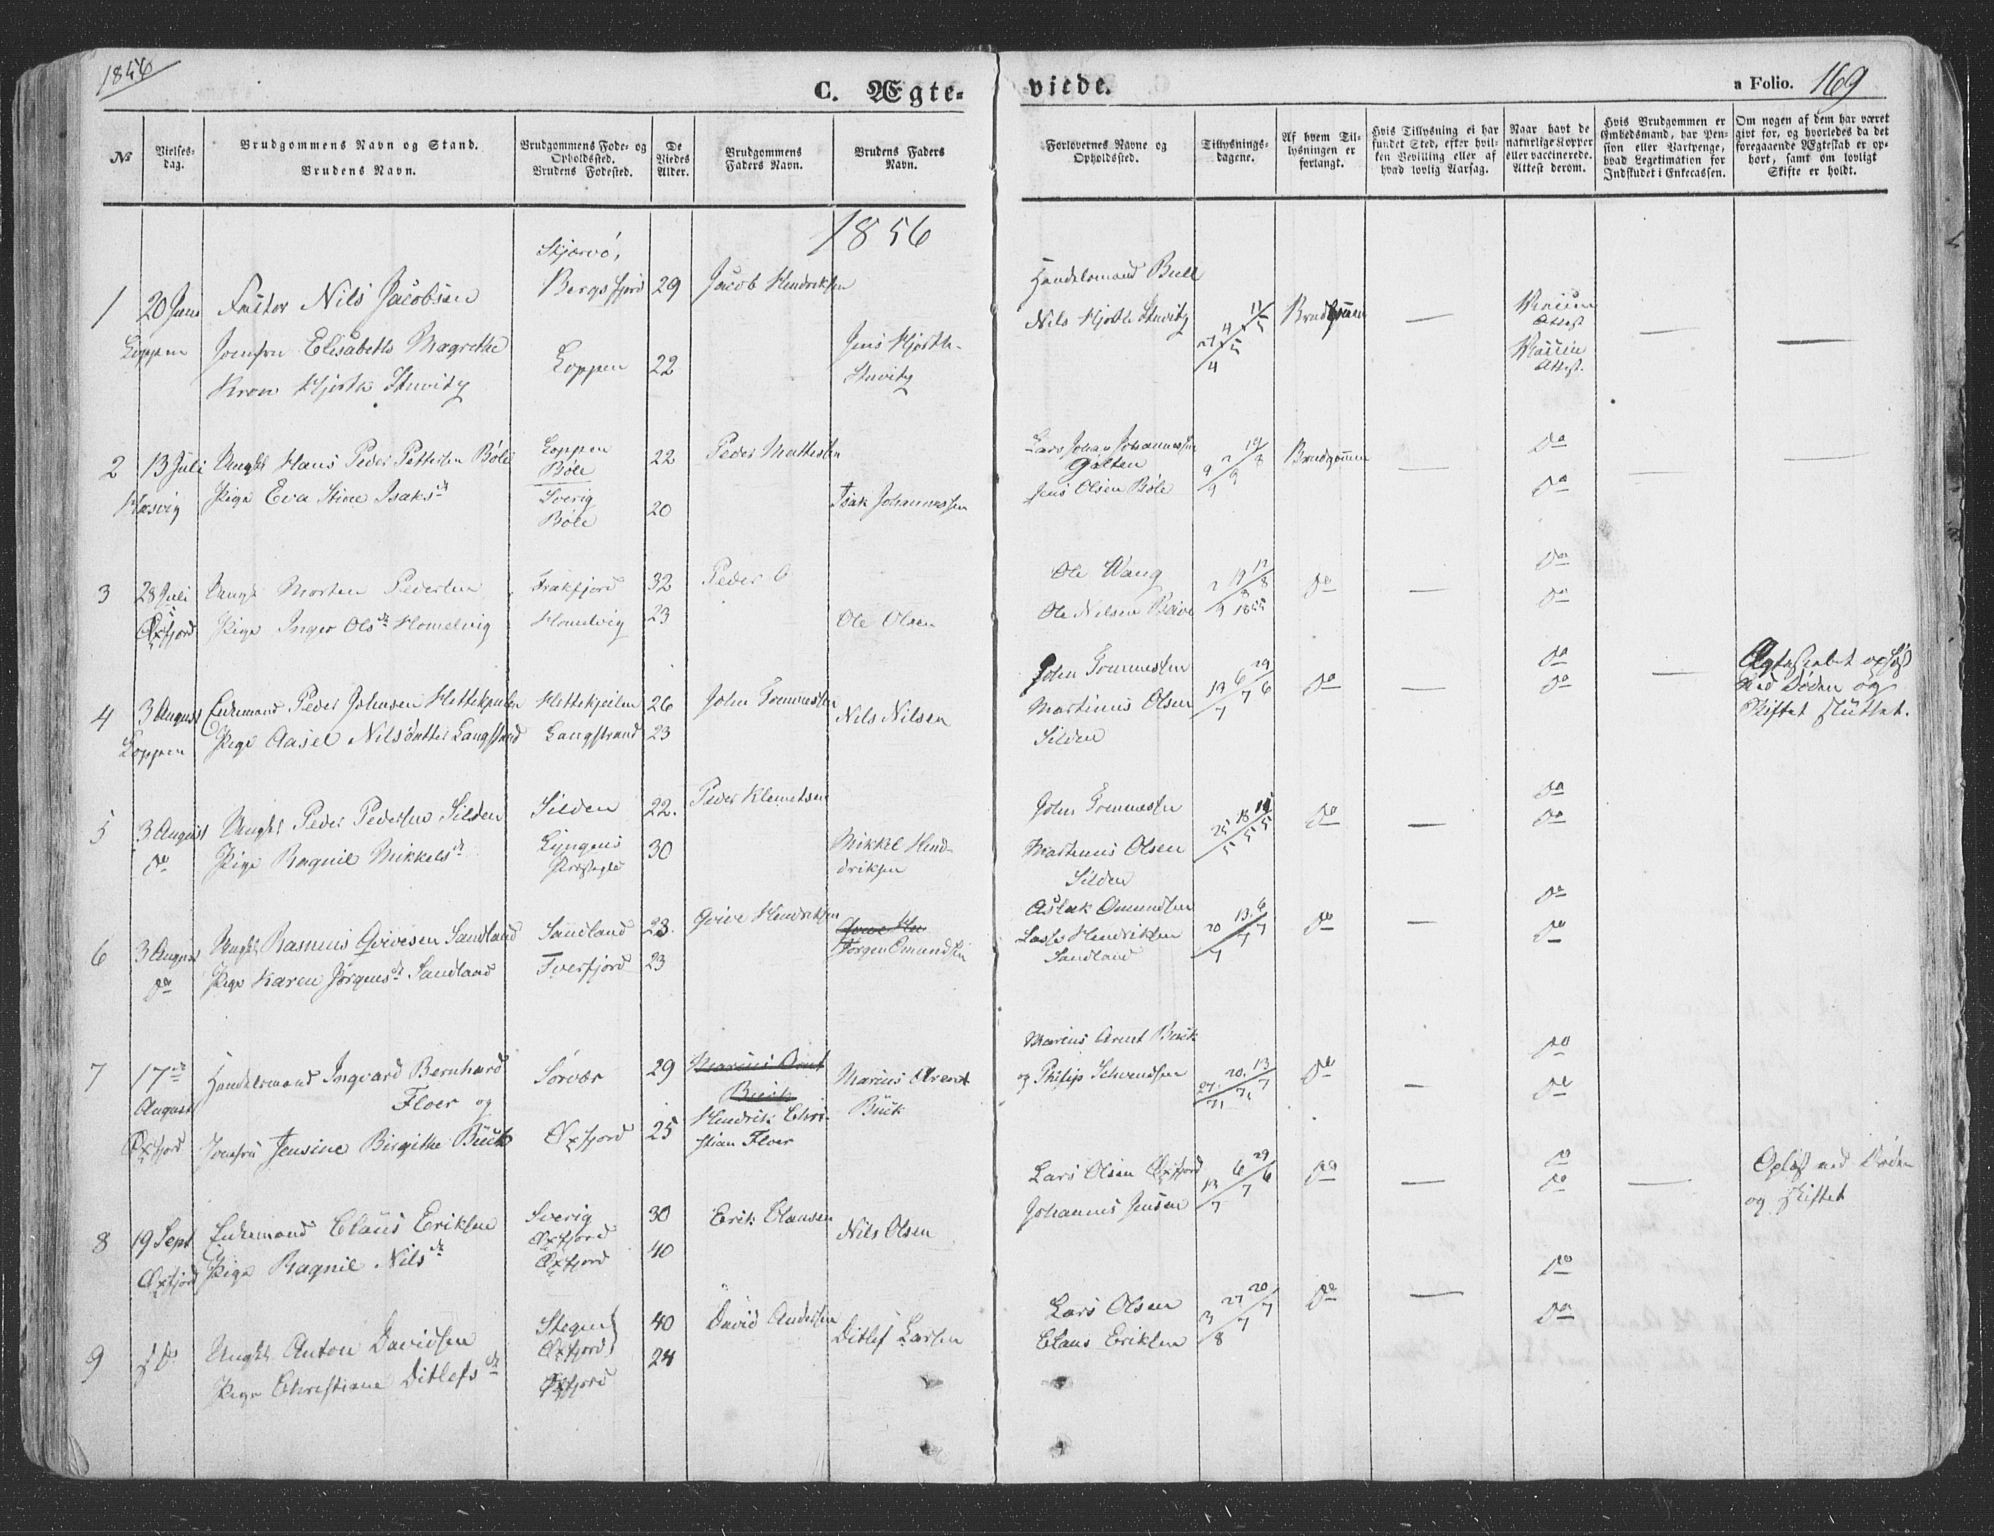 1856
C. Ægte-
viede.
a Folio. 169
No
Vielses-
dag.
Brudgommens Navn og Stand.
Brudens Navn.
Brudgommens Føde- og
Opholdssted.
Brudens Fødested.
De
Viedes
Alder.
Brudgommens
Faders Navn.
Brudens Faders
Navn.
Forlovernes Navne og
Opholdssted.
Tillysnings-
dagene.
Af hvem Til-
lysningen er
forlangt.
Hvis Tillysning ei har
fundet Sted, efter hvil-
ken Bevilling eller af
hvad lovlig Aarsag.
Naar havt de
naturlige Kopper
eller vaccinerede.
Attest derom.
Hvis Brudgommen er
Embedsmand, har Pen-
sion eller Vartpenge,
hvad Legetimation for
Indskudet i Enkecassen.
Om nogen af dem har været
gift før, og hvorledes da det
foregaaende Ægteskab er op-
hørt, samt om lovligt
Skifte er holdt.
1856
1
20 Juni
Loppen
Factor Nils Jacobsen
Jomfru Elisabeth Magrethe
Kron Hjorth Stuvitz
Skjervø,
Bergsfjord
Loppen
29
22
Jacob Hendriksen
Jens Hjorth
Stuvitz
Handelsmand Buck
Nils Hjorth Stuvitz
Brudgom
Vaccin
Attest
Vaccin
Attest.
2
13 Juli
Hasvig
Ungkl Hans Peder Pettersen Bøle
Pige Eva Stine Isaksdt
Loppen
Bøle
Sverig
Bøle
22
20
Peder Mattesen
Isak Johannessen
Lars Johan Johannessen
Galten
Jens Olsen Bøle
Brudgommen
Do
Do
3
28 Juli
Øxfjord
Ungk Morten Pedersen
Pige Inger Olsdt Komelvig
Frakfjord
Komelvig
32
23
Peder O
Ole Olsen
Ole Wang
Ole Nilsen
1855
Do
Do
Do
4
3 August
Loppen
Enkemand Peder Johnsen Hettekjeilen
Pige Aasel Nilsdatter Langstrand
Hettekjeilen
Langstrand
26
23
John Trommesen
Nils Nilsen
John Trommesen
Martinus Olsen
Silden
Do
Do
Do
Ægteskabet opløst
ved Døden og
Skiftet sluttet.
5
3 August
Do
Ungkl Peder Pedersen Silden
Pige Ragnil Mikkelsdt
Silden
Lyngens
Præstegld
22.
30
Peder Klemetsen
Mikkel Hend-
riksen
John Trommesen
Martinus Olsen
Silden
Do
Do
Do
6
3 August
Do
Ungkl Rasmus Qvivesen Sandland
Pige Karen Jørgensdt Sandland
Sandland
Tverfjord
23.
23
Qvive Hendriksen
Jørgen Omundsen
Aslak Omundsen
Lasse Hendriksen
Sandland
Do
Do
Do
7
17de
August
Øxfjord
Handelsmand Ingvard Bernhard
Floer og
Jomfru Jensine Birgithe Buck
Sørvær
Øxfjord
29
25
Marius Arnt
Buck
Hendrik Chri-
stian Floer
Marius Arent
Buck
Marius Arnt Buck
og Philip Schvendsen
Do
Do
Do
8
19 Sept
Øxfjord
Enkemand Claus Eriksen
Pige Ragnil Nilsdt
Sverig
Øxfjord
Øxfjord
30
40
Erik Clausen
Nils Olsen
Lars Olsen Øxfjord
Johannes Jensen
Do
Do
Do
Opløst ved Døden
og skiftet
9
Do
Ungkl Anton Davidsen
Pige Christiane Ditlefsdt
Stegen
Øxfjord
Øxfjord
40
24
David Andersen
Ditlef Larsen
Lars Olsen
Claus Eriksen
Do
Do
Do